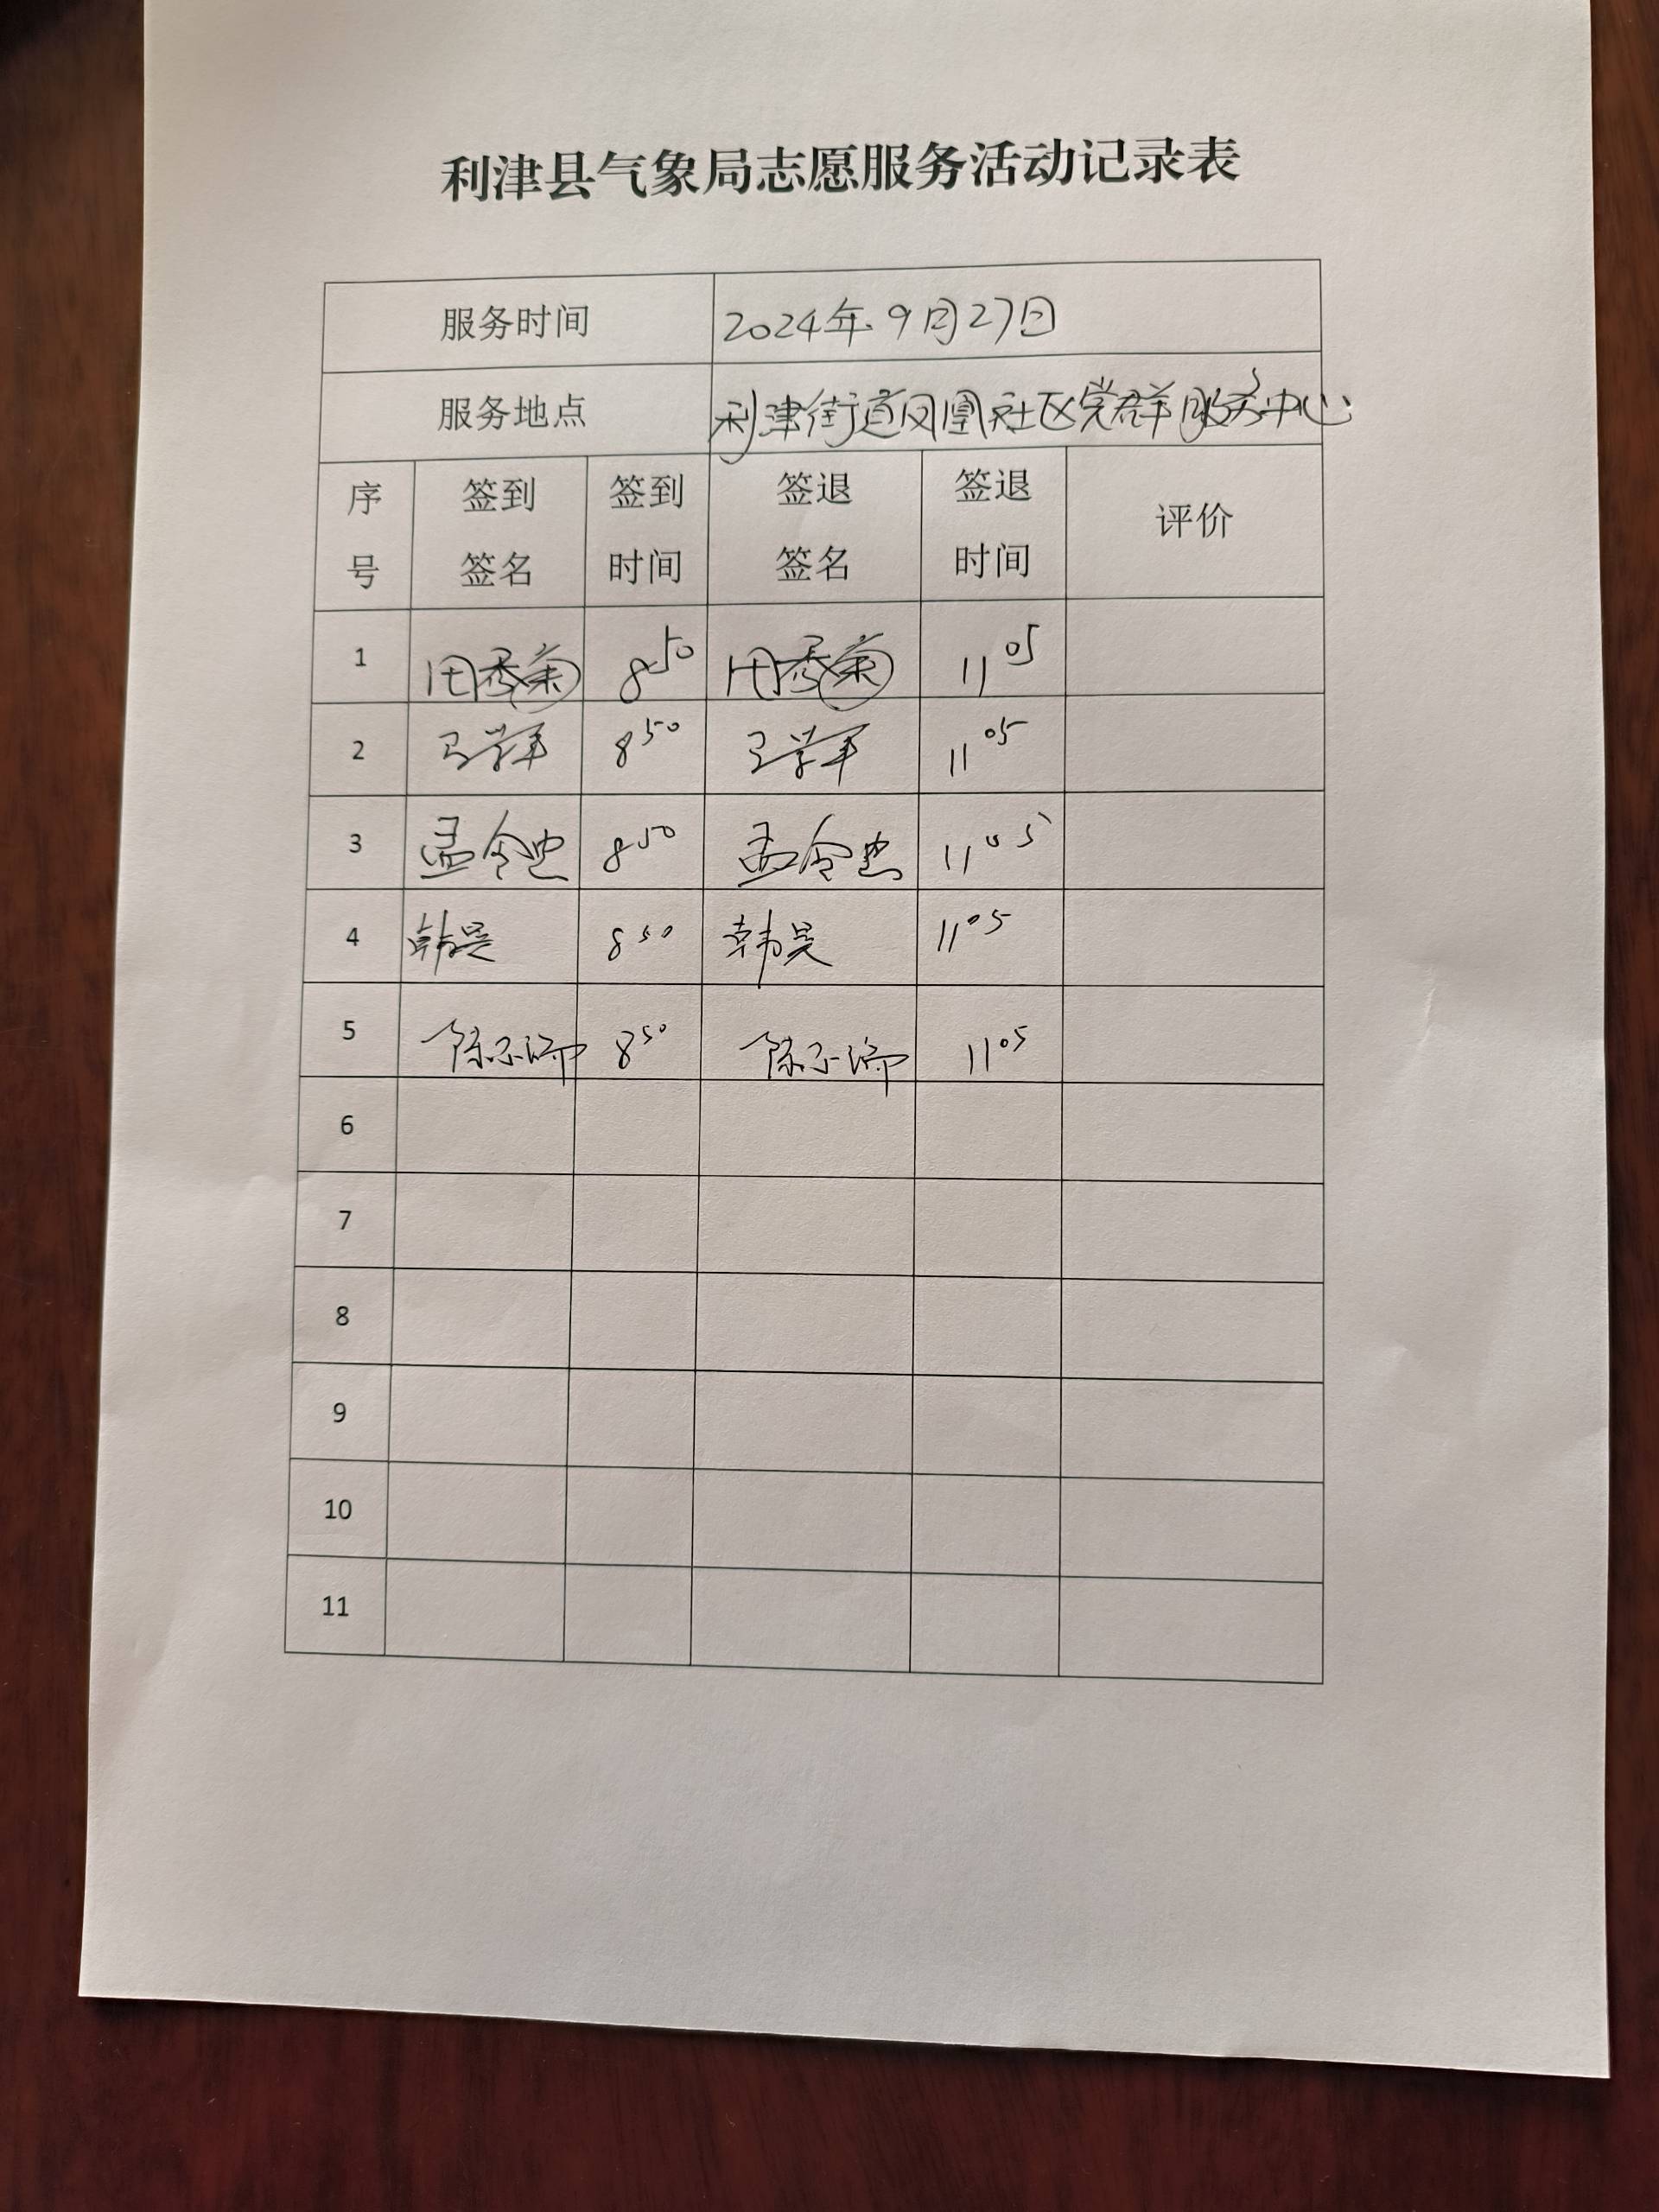 利津县气象局志愿服务活动记录表
服务时间 2024年9月27日
服务地点 利津街道凤凰社区党群服务中心
序号 签到签名 签到时间 签退签名 签退时间 评价
1 田秀菊 8 50 田秀菊 11 05
2 8 50 11 05
3 孟令忠 8 50 孟令忠 11 05
4 韩昊 8 50 韩昊 11 05
5 8 50 11 05
6
7
8
9
10
11